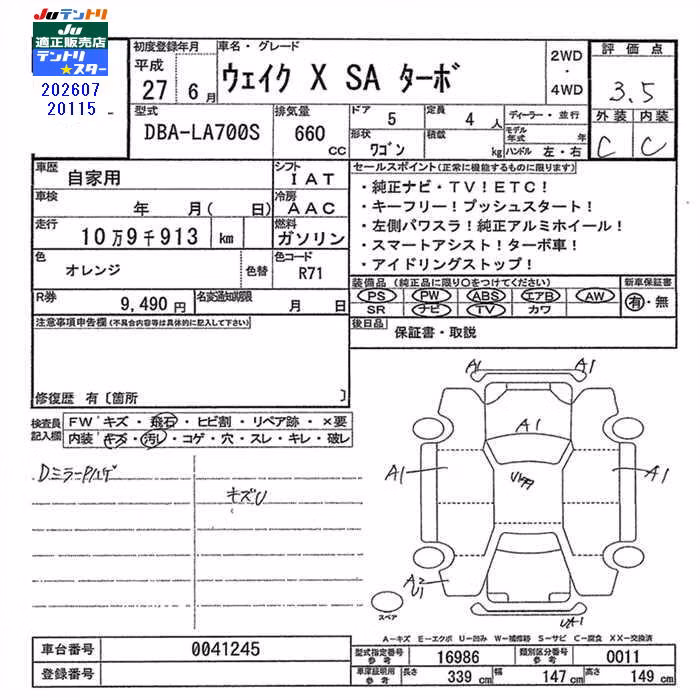 Juテントリ
Ju
適正販売店
テントリ
★スター
202607
20115
初度登録年月
平成
27 6月
車名・グレード
ウェイク X SA ターボ
2WD
・
4WD
評価点
3.5
外装 内装
C C
型式
DBA-LA700S
排気量
660 CC
ドア
5
定員
4 人
形状
ワゴン
積載
kg
ディーラー・並行
モデル年式 年
ハンドル 左・右
車歴
自家用
シフト
IAT
車検
年 月( 日)
冷房
AAC
走行
10万9千913 km
燃料
ガソリン
色
オレンジ
色替
色コード
R71
R券
9,490 円
名変通知期限
月 日
セールスポイント(正常に機能するものに限ります)
・純正ナビ・TV!ETC!
・キーフリー!プッシュスタート!
・左側パワスラ!純正アルミホイール!
・スマートアシスト!ターボ車!
・アイドリングストップ!
装備品 (純正品に限り○をつけてください)
新車保証書
PS PW ABS エアB AW
有・無
SR ナビ TV カワ
後日品
保証書・取説
注意事項申告欄(不具合内容等は具体的に記入して下さい)
修復歴 有〔箇所 〕
検査員
記入欄
FWキズ・飛石・ヒビ割・リペア跡・×要
内装キズ・汚レ・コゲ・穴・スレ・キレ・破レ
DミラーPハゲ
キズU
A1
A1
A1
A1
A1
A2
U1
スペア
A-キズ E-エクボ U-凹み W-補修跡 S-サビ C-腐食 XX-交換済
車台番号
0041245
登録番号
型式指定番号
参考
16986
類別区分番号
参考
0011
車庫証明用
参考
長さ
339 cm
幅
147 cm
高さ
149 cm